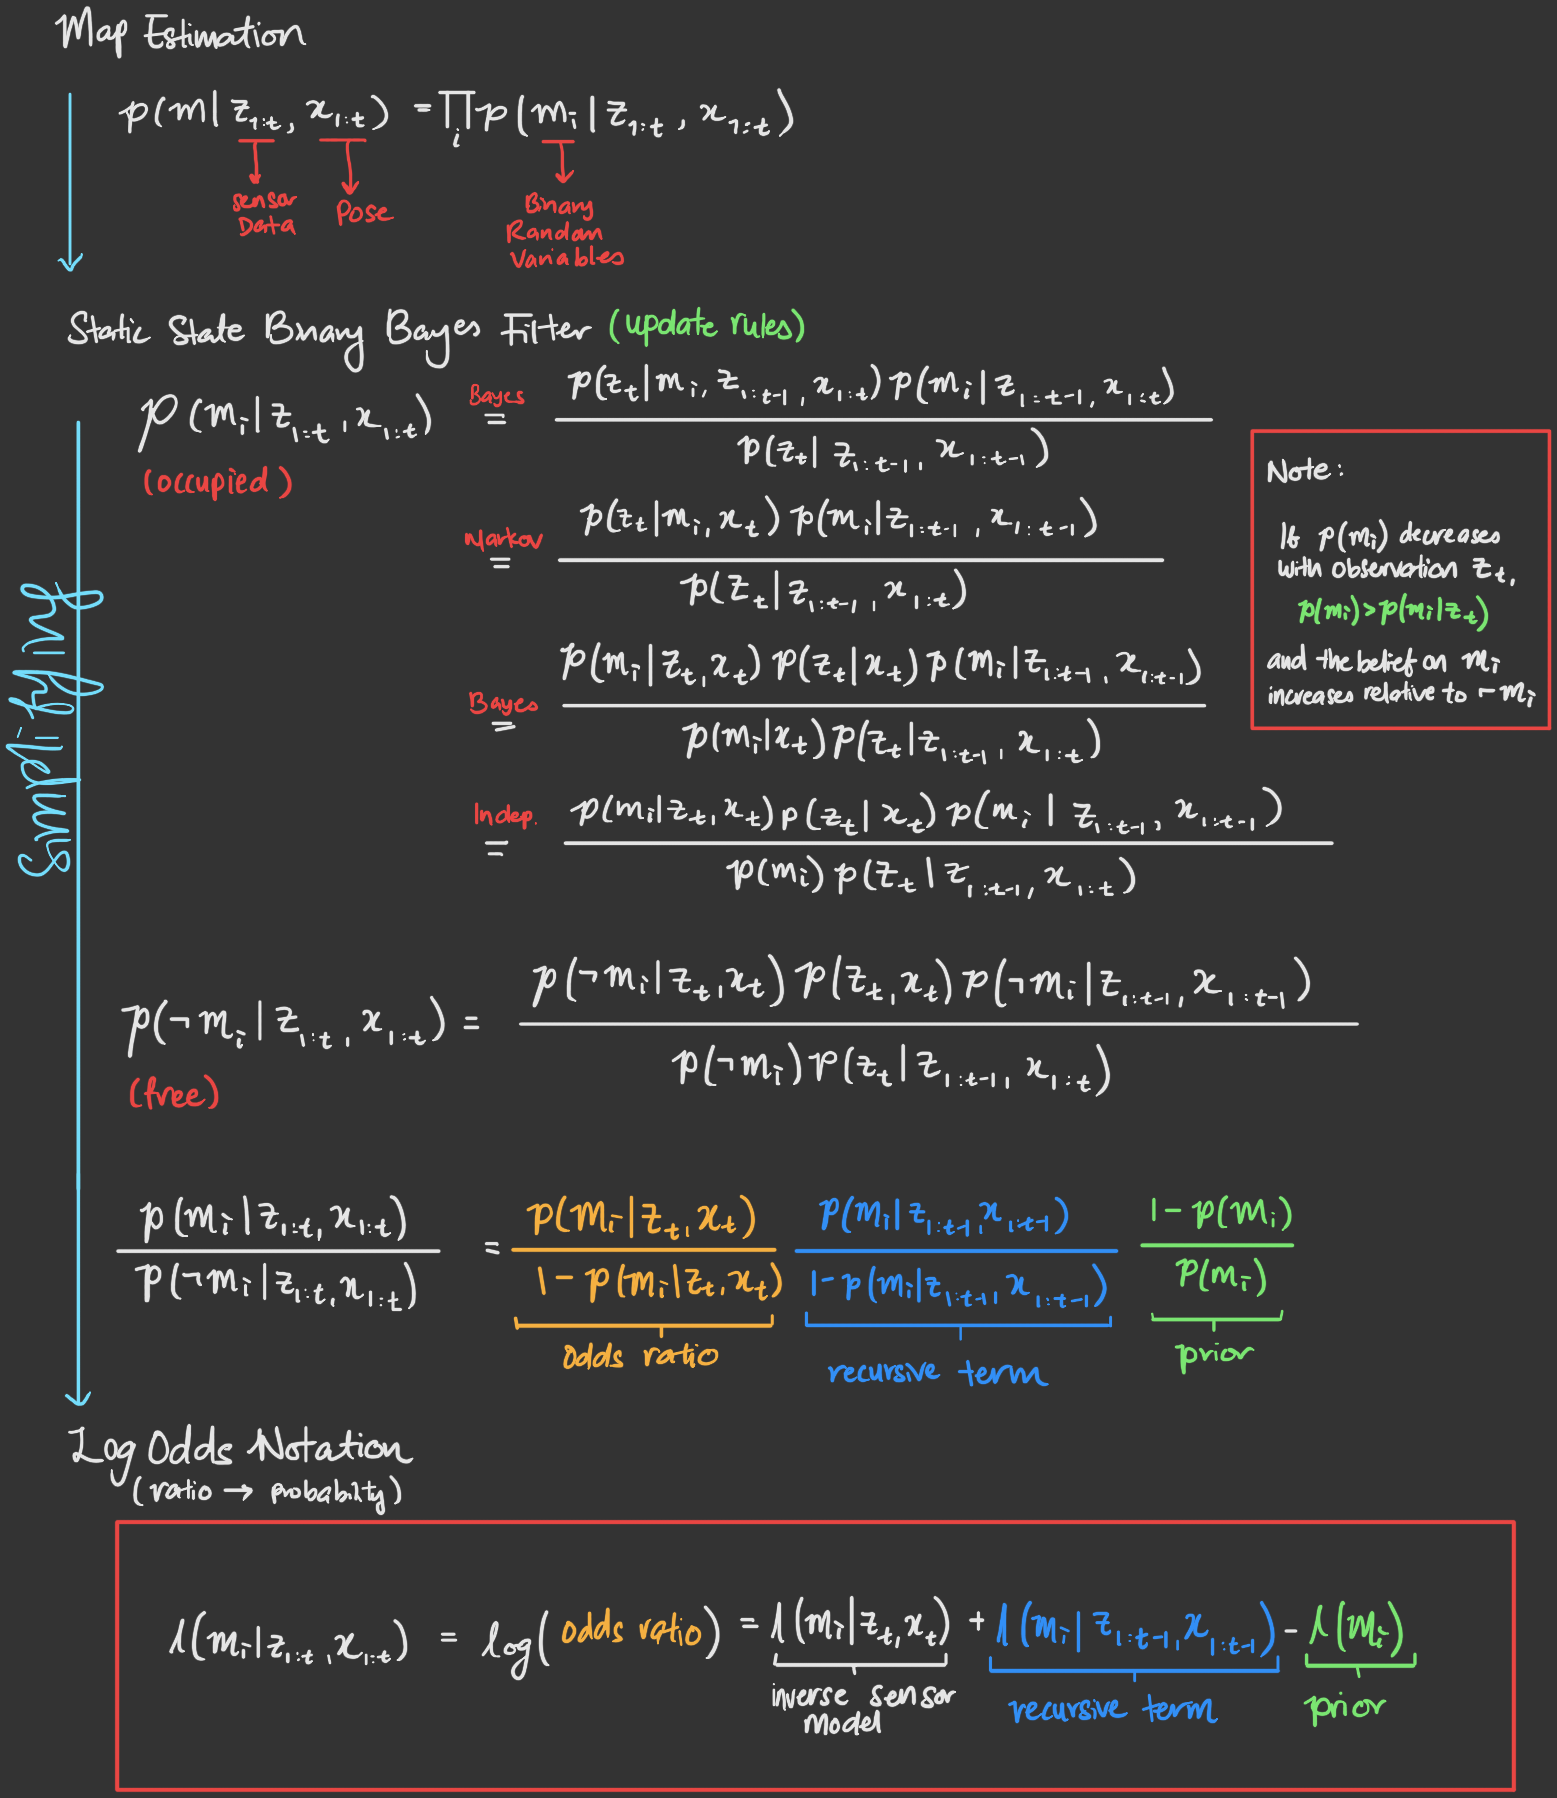 Map Estimation
p(m | z_{1:t}, x_{1:t}) = ∏_i p(m_i | z_{1:t}, x_{1:t})
sensor Data
Pose
Binary Random Variables
Static State Binary Bayes Filter (update rules)
p(m_i | z_{1:t}, x_{1:t})
(occupied)
Bayes = p(z_t | m_i, z_{1:t-1}, x_{1:t}) p(m_i | z_{1:t-1}, x_{1:t}) / p(z_t | z_{1:t-1}, x_{1:t-1})
Markov = p(z_t | m_i, x_t) p(m_i | z_{1:t-1}, x_{1:t-1}) / p(z_t | z_{1:t-1}, x_{1:t})
Bayes = p(m_i | z_t, x_t) p(z_t | x_t) p(m_i | z_{1:t-1}, x_{1:t-1}) / p(m_i | x_t) p(z_t | z_{1:t-1}, x_{1:t})
Indep. = p(m_i | z_t, x_t) p(z_t | x_t) p(m_i | z_{1:t-1}, x_{1:t-1}) / p(m_i) p(z_t | z_{1:t-1}, x_{1:t})
Note:
If p(m_i) decreases
with observation z_t,
p(m_i) > p(m_i | z_t)
and the belief on m_i
increases relative to ¬m_i
Simplifying
p(¬m_i | z_{1:t}, x_{1:t}) = p(¬m_i | z_t, x_t) p(z_t, x_t) p(¬m_i | z_{1:t-1}, x_{1:t-1}) / p(¬m_i) p(z_t | z_{1:t-1}, x_{1:t})
(free)
p(m_i | z_{1:t}, x_{1:t}) / p(¬m_i | z_{1:t}, x_{1:t}) = p(m_i | z_t, x_t) / 1 - p(m_i | z_t, x_t) p(m_i | z_{1:t-1}, x_{1:t-1}) / 1 - p(m_i | z_{1:t-1}, x_{1:t-1}) 1 - p(m_i) / p(m_i)
odds ratio
recursive term
prior
Log Odds Notation
(ratio → probabilty)
l(m_i | z_{1:t}, x_{1:t}) = log(odds ratio) = l(m_i | z_t, x_t) + l(m_i | z_{1:t-1}, x_{1:t-1}) - l(m_i)
inverse sensor model
recursive term
prior